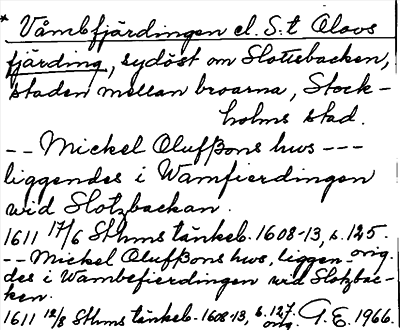 * Våmbfjärdingen el. S:t Olavs
fjärding, sydöst om Slottsbacken,
staden mellan broarna, Stock-
holms stad.
-- Mickel Olufßons hws ---
liggendes i Wamfierdingen
wid Slotzbackan.
1611 17/6 Sthms tänkeb. 1608-13, s. 125.
orig.
-- Mickel Olufßons hws, liggen-
des i Wambefierdingen wid Slotzbac-
ken.
1611 12/8 Sthms tänkeb. 1608-13, s. 127. G.E. 1966.
orig.